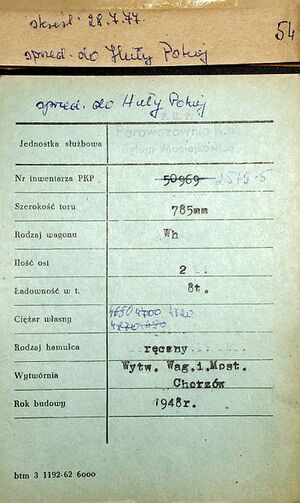 skreśl. 28.7.77.
54
sprzed. do Huty Pokój
sprzed. do Huty Pokój
Parowozownia
Bytom Maciejkowice
Jednostka służbowa
Nr inwentarza PKP . 50969 2575-5
Szerokość toru 785mm
Rodzaj wagonu Wh
Ilość osi 2
Ładowność w t. 8t.
4650 4700 4320
Ciężar własny
Rodzaj hamulca ręczny
Wytw. Wag.i.Most.
Wytwórnia Chorzów
Rok budowy 1948r.
btm 3 1192-62 6000